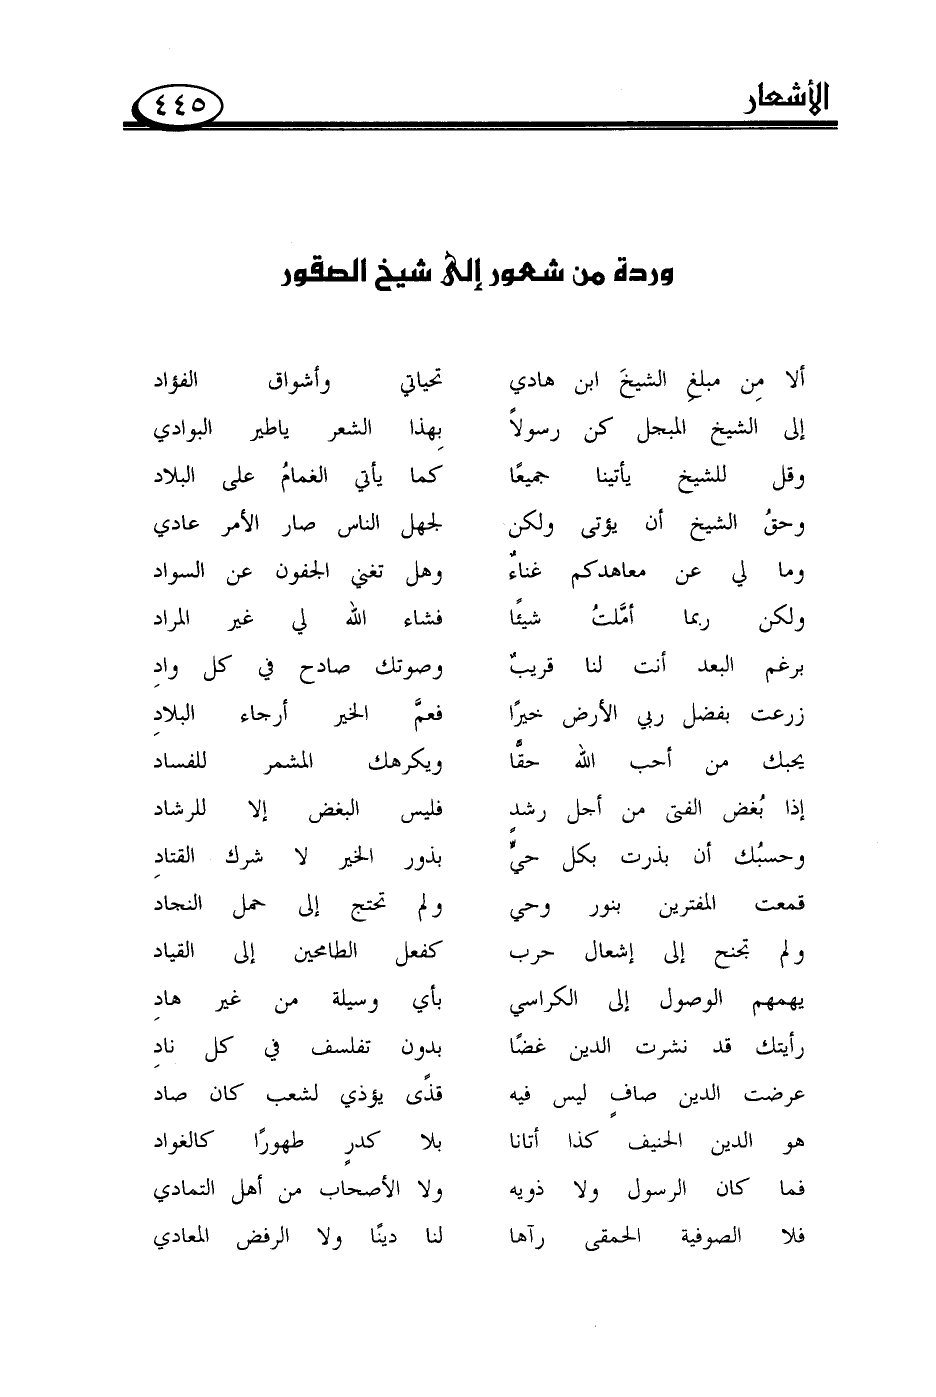 الأشعار ٤٤٥
وردة من شعور إلى شيخ الصقور
ألا مِن مبلغِ الشيخَ ابن هادي تحياتي وأشواق الفؤاد
إلى الشيخ المبجل كن رسولاً بهذا الشعر ياطير البوادي
وقل للشيخ يأتينا جميعًا كما يأتي الغمامُ على البلاد
وحقُ الشيخ أن يؤتى ولكن لجهل الناس صار الأمر عادي
وما لي عن معاهدكم غناءٌ وهل تغني الجفون عن السواد
ولكن ربما أمَّلتُ شيئًا فشاء الله لي غير المراد
برغم البعد أنت لنا قريبٌ وصوتك صادح في كل وادِ
زرعت بفضل ربي الأرض خيرًا فعمَّ الخير أرجاء البلادِ
يحبك من أحب الله حقًّا ويكرهك المشمر للفساد
إذا بُغض الفتى من أجل رشدٍ فليس البغض إلا للرشاد
وحسبُك أن بذرت بكل حيٍّ بذور الخير لا شرك القتادِ
قمعت المفترين بنور وحي ولم تحتج إلى حمل النجاد
ولم تجنح إلى إشعال حرب كفعل الطامحين إلى القياد
يهمهم الوصول إلى الكراسي بأي وسيلة من غير هادِ
رأيتك قد نشرت الدين غضًا بدون تفلسف في كل نادِ
عرضت الدين صافٍ ليس فيه قذًى يؤذي لشعب كان صاد
هو الدين الحنيف كذا أتانا بلا كدرٍ طهورًا كالغواد
فما كان الرسول ولا ذويه ولا الأصحاب من أهل التمادي
فلا الصوفية الحمقى رآها لنا دينًا ولا الرفض المعادي